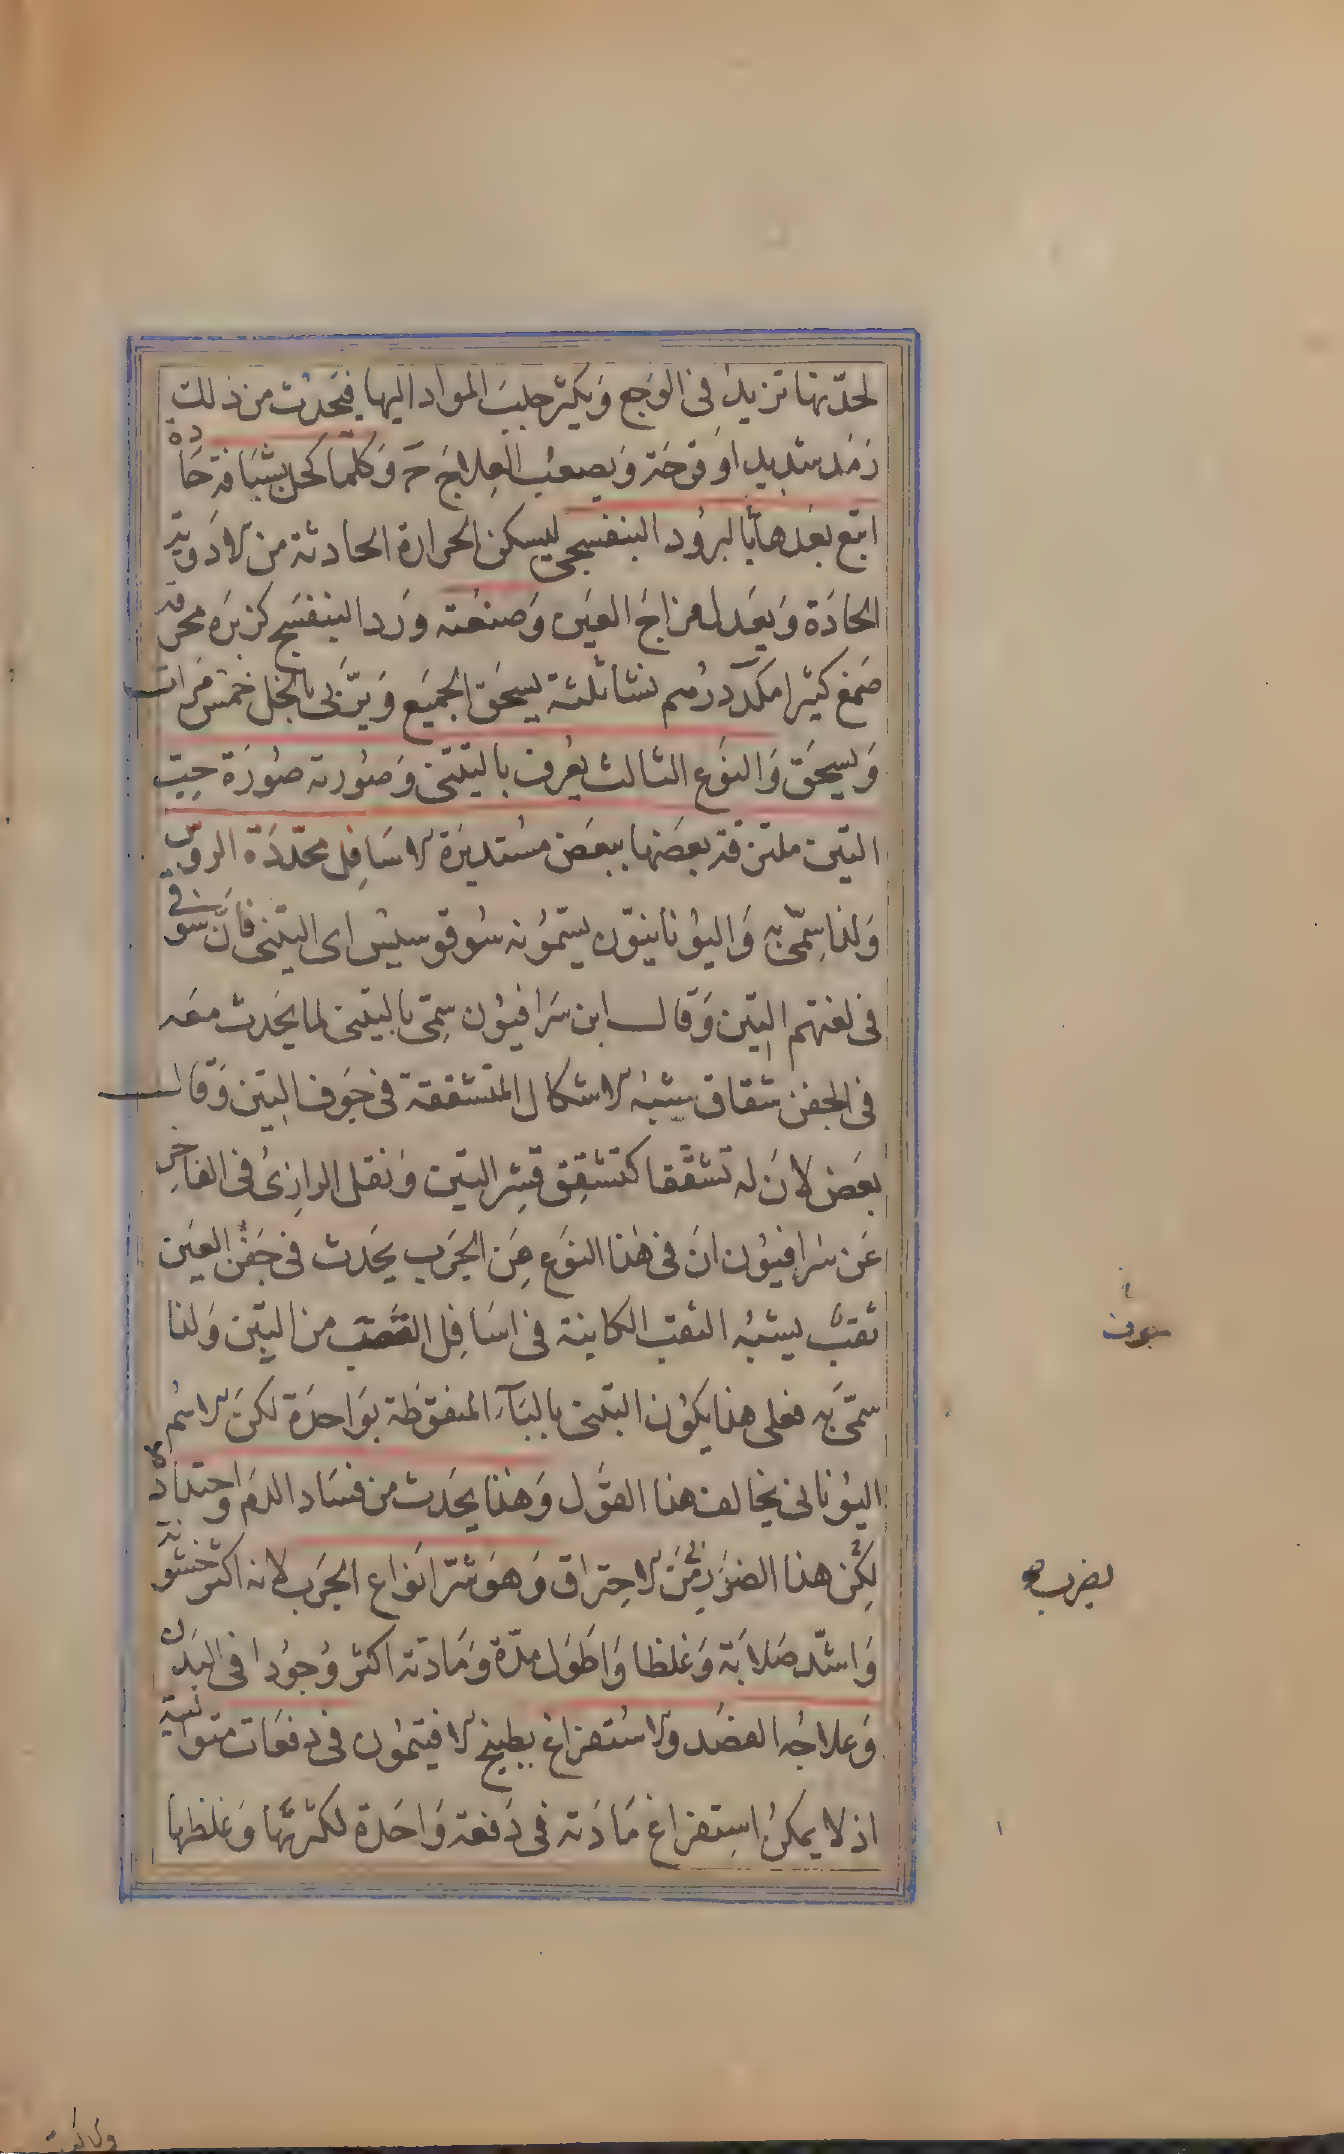 لحدّتها تزيد في الوَجع وَيكثر جلبَ المواد اليها فيَحدُث من ذلك
رَمَد شديد او قرحَة وَيصعبُ العِلاجَ ح وَكلّما كحل بشيَافة حَادة
اتبع بَعدهَا بالبرُود البنفسجى ليسكن الحرارة الحادثة من الادوية
الحادَة وَيعَدل مزاجَ العَين وَصنعَته وَرد البنفسَج كزبَره محرقة
صَمغ كثيرا مكد درهم نشا ثلثة يسحَق الجميَع وَيرَبى بالخل خمسَ مَرات
وَيسحَق وَالنوَع الثالث يعُرف بالتيَنى وَصُورته صُورَة حبّ
التين ملتزقة بعضَها ببعَض مسُتديرَة الاسَافِل محدّدَة الروس
وَلذا سِمّى به وَاليوُنانيّون يسَمّوُنه سُوقوسيسُ اى التينى فانّ سوَقى
في لغتهم التين وَقال ابن سَرافيوُن سِمّى بالتيَنى لما يحَدث معَه
في الجفن شقاق يشبهُ الاشكال المتشققة في جَوف التين وَقال
بعَض لانَ له تشقّقا كتشقِق قشِر التين وَنقل الرازِىُ في الفاخِر
عَن سَرافيوُن انَ في هٰذا النوَع مِن الجَرَب يحَدث في جَفن العَين
ثقبٌ يشبهُ الثقب الكاينة في اسَافِل القصَب من التِبن وَلذا
سمّىَ به فعلى هذا يكوُن التبنى بالبَاء المنقوُطة بوَاحدَة لكنَ الاسُم
اليوُنانى يخالف هذا القوَل وَهٰذا يحَدث من فسَاد الدمَ وَاحتدادٌ
لكِن هذا الضرَب من الاحِتراق وَهوَ شرّ انوَاع الجرَب لانه اكثر خشوُنة
وَاشدّ صَلابَة وَغلظا وَاطوَل مدّة وَمَادته اكثر وُجوُدا في البَدن
وَعلاجُه الفصَد والاسُتفراغ بطبيخ الافيتمُون في دفعَات متوَالية
اذ لا يمكنُ اسِتفراغ مَادَته في دَفعَة وَاحَدة لكثرتهَا وَغلظها
يضرب